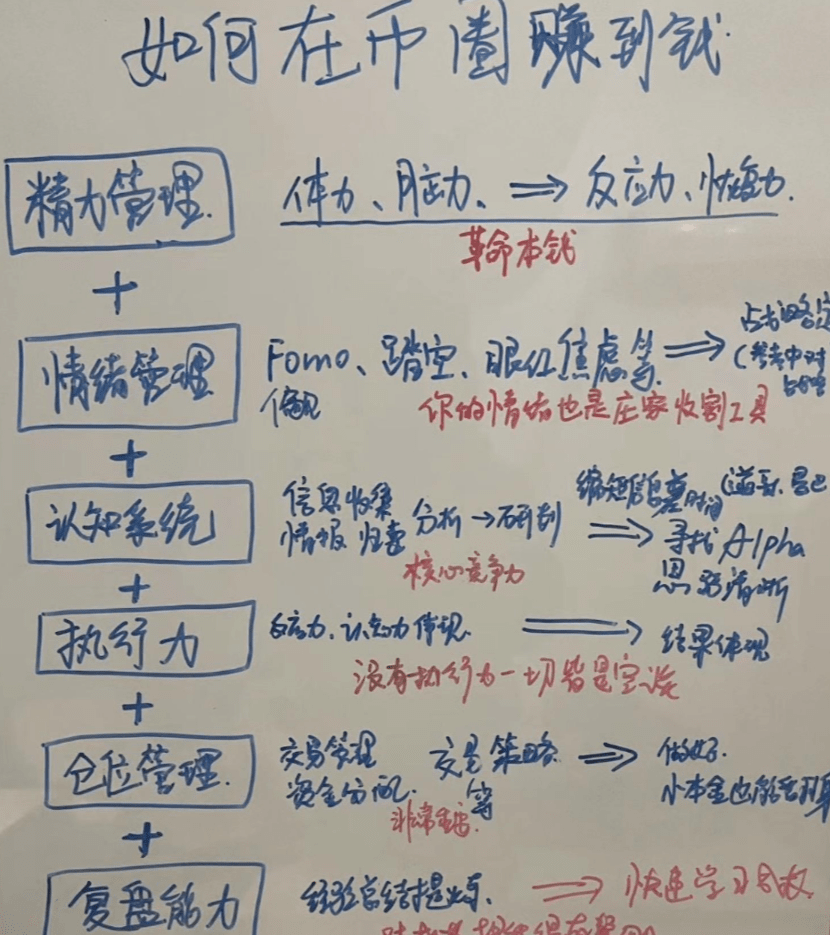 如何在币圈赚到钱
精力管理 体力、脑力、⇒ 反应力、恢复力.
革命本钱
+
情绪管理 Fomo、踏空、眼红焦虑等 ⇒
(参考中时
你的情绪也是庄家收割工具
+
认知系统 信息收集 分析→研判 ⇒ 缩短信息差时间
情报 归纳 寻找Alpha
核心竞争力 思路清晰
+
执行力 反应力、认知力体现. ⇒ 结果体现
没有执行力一切皆是空谈
+
仓位管理. 交易管理 交易策略 ⇒ 做好.
资金分配. 等 小本金也能
非常重要.
+
复盘能力 经验总结提炼. ⇒ 快速学习